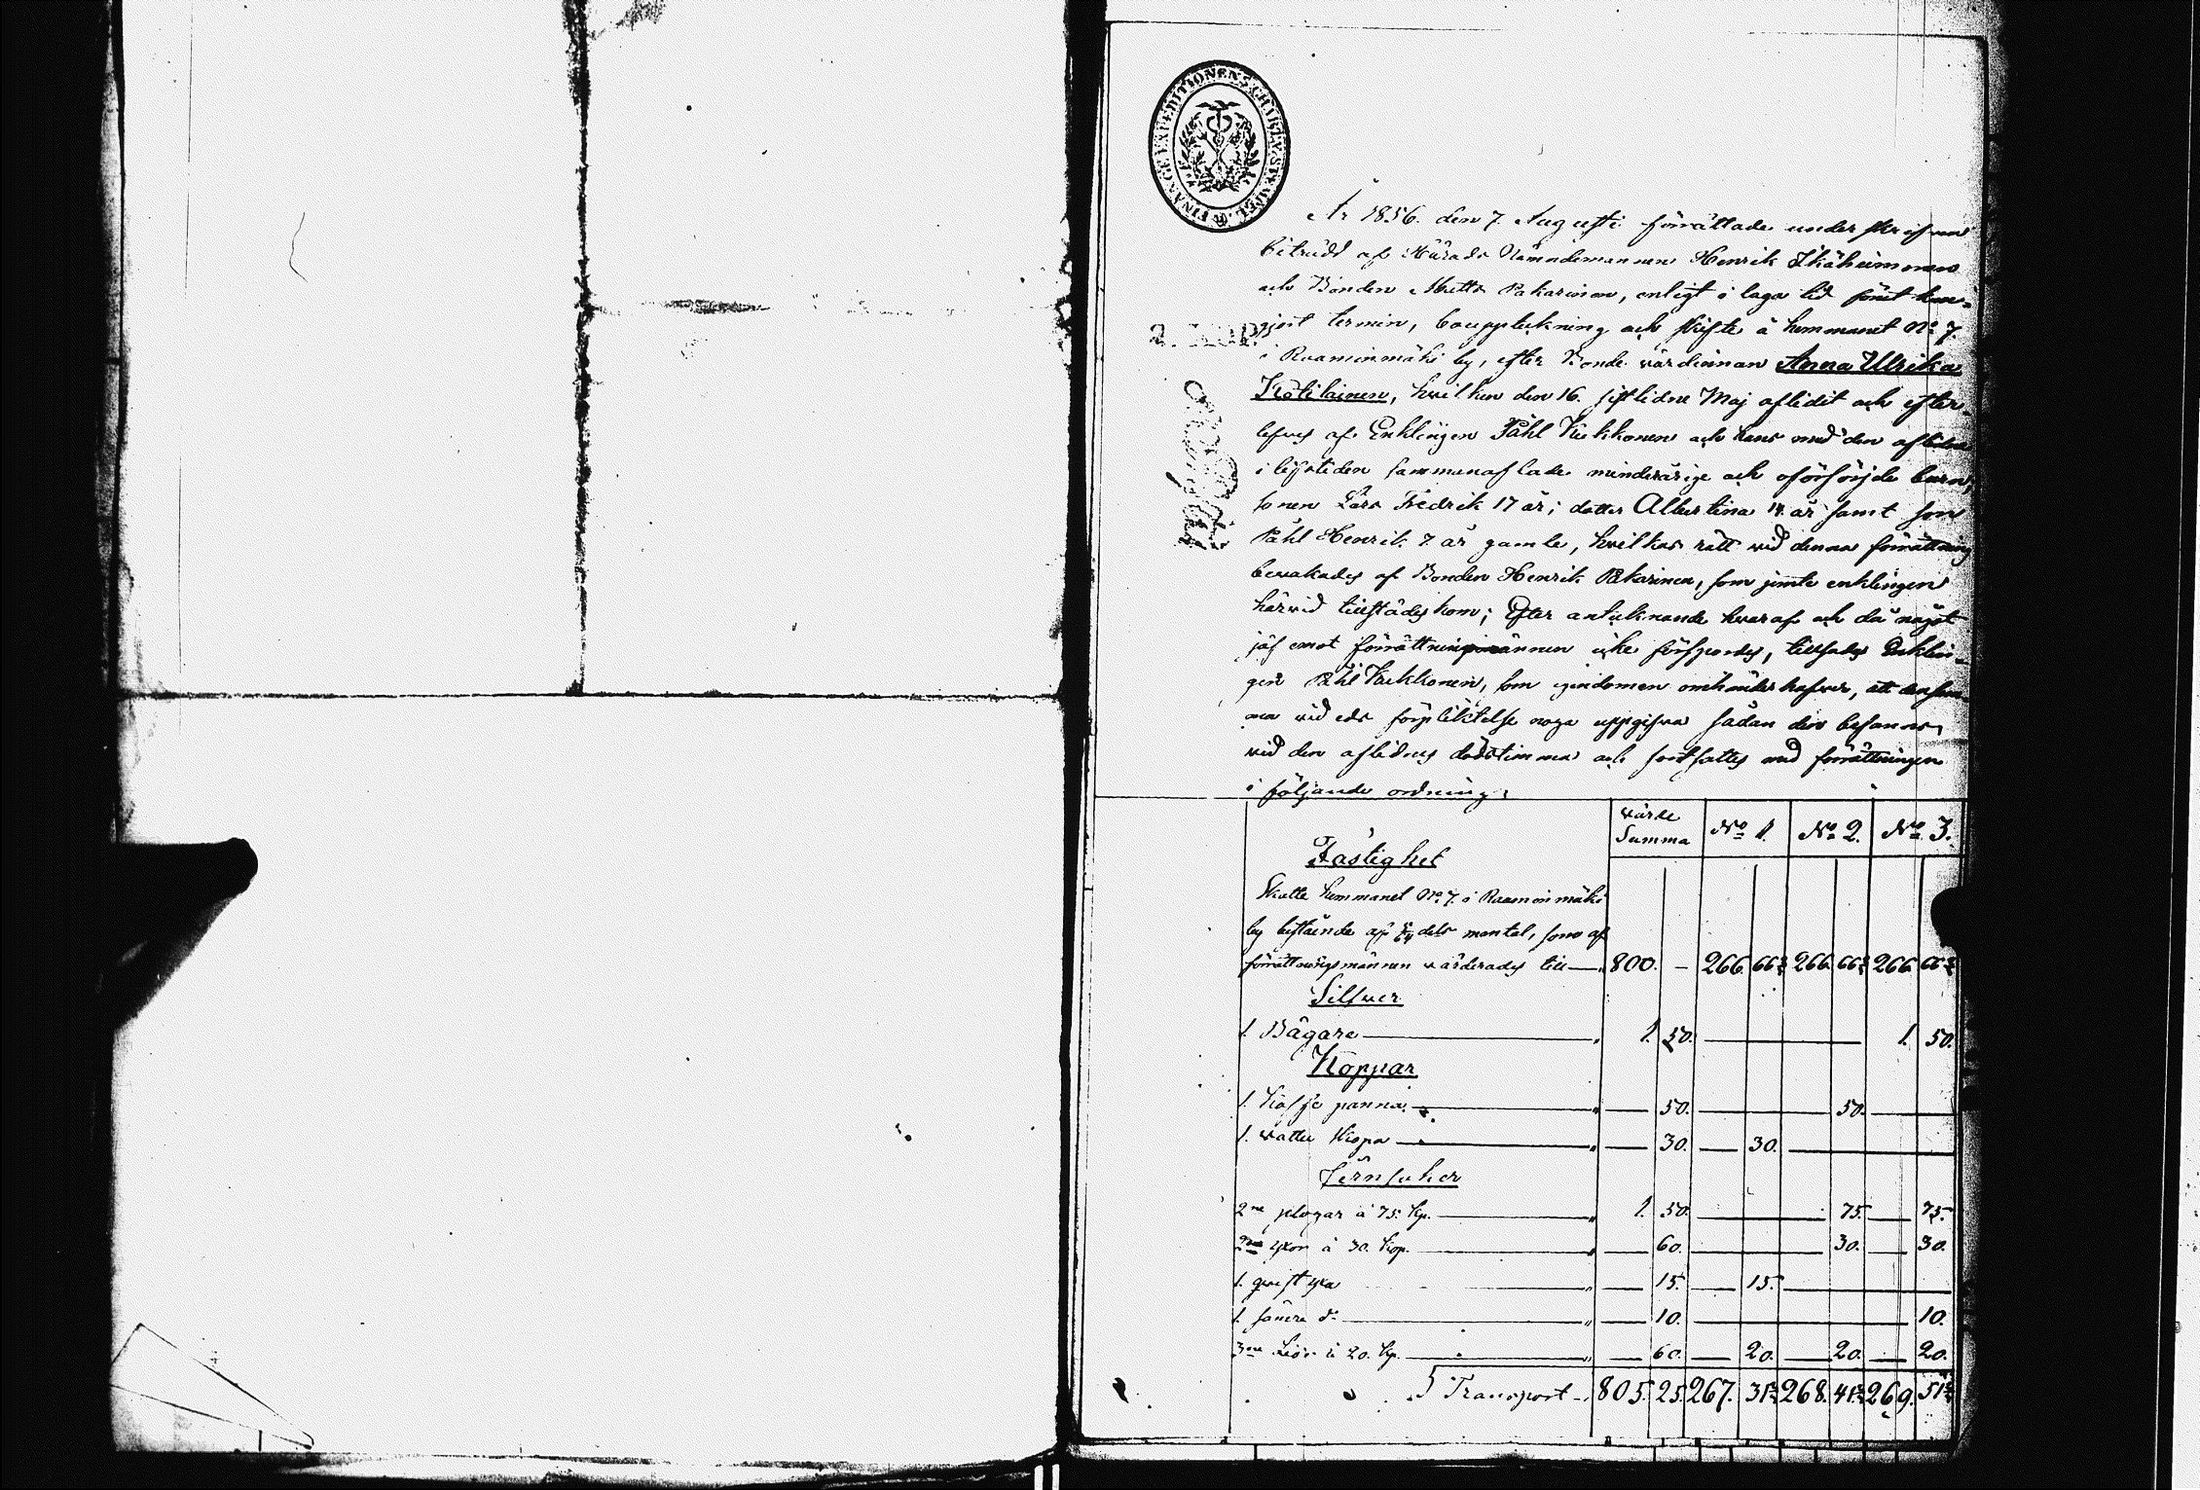 FINANCE EXPEDITIONENS CHARTÆ STÄMPEL
År 1856. den 7. Augusti förrättade underskrifven
biträdd af Härads Nämndemannen Henrik Ikäheimonen
och Bonden Matts Pakarinen, enligt i laga tid förut kun-
gjort termin, bouppteckning och skifte å hemmanet No 7.
2. KOP.
i Raaminmäki by, efter Bonde värdinnan Anna Ulrika
Kötilainen, hvilken den 16. sistlidne Maj aflidit och efter-
lefves af Enklingen Påhl Kukkonen och hans med den aflidna
i lifstiden sammanaflade minderårige och oförsörjde barn,
sonen Lars Fredrik 17 år; dotter Albertina 14 år samt son
Påhl Henrik 7. år gamle, hvilkas rätt vid denna förrättning
bevakades af Bonden Henrik Pakarinen, som jemte enklingen
härvid tillstädes kom; Efter antecknande hvaraf och då något
jäf emot förrättningsmännen icke förspordes, tillsades Enklin-
gen Påhl Kukkonen, som egendomen omhänder hafver, att densam-
ma vid eds förpliktelse noga uppgifva sådan den befanns
vid den aflidnes dödstimma och fortsattes med förrättningen
i följande ordning;
värde Summa No 1. No 2. No 3.
Fastighet
Skatte hemmanet No 7. i Raaminmäki
by bestående af dels mantal, som af
förrättningsmännen värderades till 800. — 266. 66 2/3 266. 66 2/3 266. 66 2/3
Silfver
1. Bägare 1. 50. 1. 50.
Koppar
1. Kaffe panna 50. 50.
1. vatten Skopa 30. 30.
Jernsaker
2ne plogar à 75. Kp. 1. 50. 75. 75.
2ne yxor à 30. Kop. 60. 30. 30.
1. yxa 15. 15.
1. sämre do 10. 10.
3ne Liar à 20. Kp. 60. 20. 20. 20.
Transport 805. 25. 267. 31 2/3 268. 41 2/3 269. 51 2/3